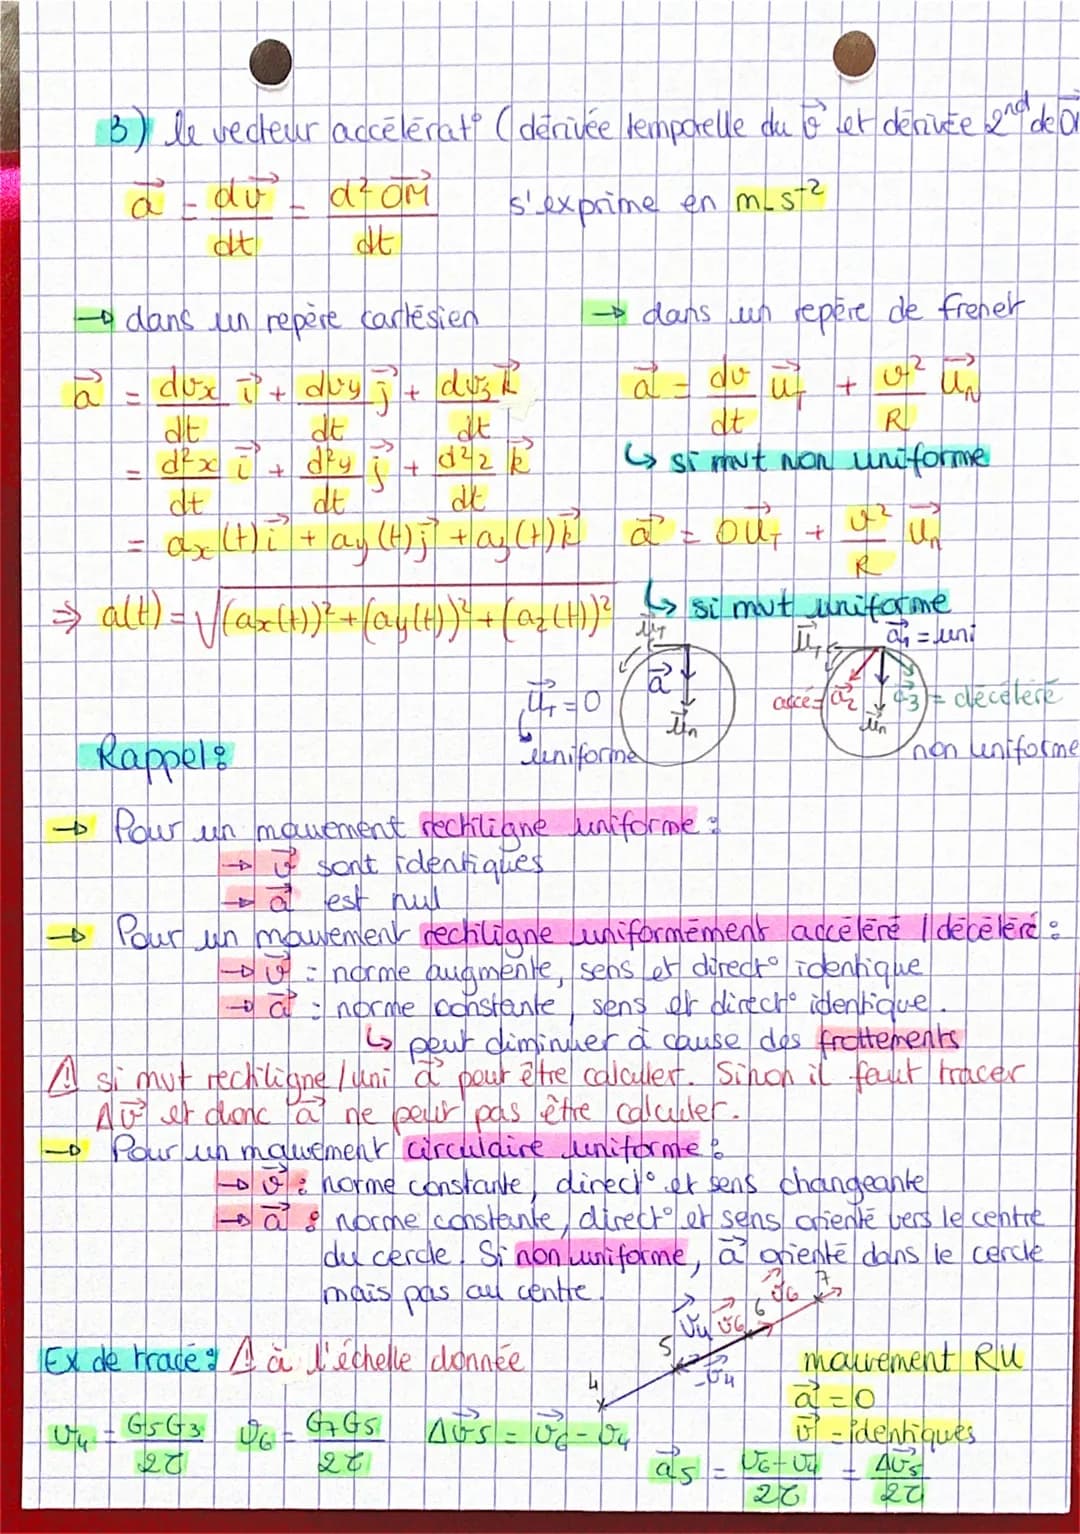 3) le vecteur accélérat° (dérivée temporelle du v⃗ et dérivée 2nd de O
a⃗ = dv⃗/dt = d²OM⃗/dt s'exprime en m.s⁻²
→ dans un repère cartésien
a⃗ = dvx/dt i⃗ + dvy/dt j⃗ + dvz/dt k⃗
= d²x/dt i⃗ + d²y/dt j⃗ + d²z/dt k⃗
= ax(t)i⃗ + ay(t)j⃗ + az(t)k⃗
⇒ a(t) = √((ax(t))² + (ay(t))² + (az(t))²)
→ dans un repère de frenet
a⃗ = dv/dt u⃗T + v²/R u⃗n
↳ si mvt non uniforme
a⃗ = 0u⃗T + v²/R u⃗n
↳ si mvt uniforme
u⃗T
a⃗
u⃗n
u⃗T = 0
↳ uniforme
u⃗T
a⃗1 = uni
accé = a⃗2
a⃗3 = décéléré
u⃗n
non uniforme
Rappel :
→ Pour un mouvement rectiligne uniforme :
→ v⃗ sont identiques
→ a⃗ est nul
→ Pour un mouvement rectiligne uniformément accéléré / décéléré :
→ v⃗ : norme augmente, sens et direct° identique
→ a⃗ : norme constante, sens et direct° identique.
↳ peut diminuer à cause des frottements
⚠ si mvt rectiligne/uni a⃗ peut être calculer. Sinon il faut tracer
Δv⃗ et donc a⃗ ne peut pas être calculer.
→ Pour un mouvement circulaire uniforme :
→ v⃗ : norme constante, direct° et sens changeante
→ a⃗ : norme constante, direct° et sens orienté vers le centre
du cercle. Si non uniforme, a⃗ orienté dans le cercle
mais pas au centre.
Ex de tracé : ⚠ à l'échelle donnée
4
5
6
7
v⃗4
v⃗6
v⃗6
-v⃗4
mouvement RU
a⃗ = 0
v⃗ = identiques
v4 = G5G3/2τ v6 = G7G5/2τ Δv⃗5 = v⃗6 - v⃗4
a⃗5 = v6-v4/2τ = Δv⃗5/2τ